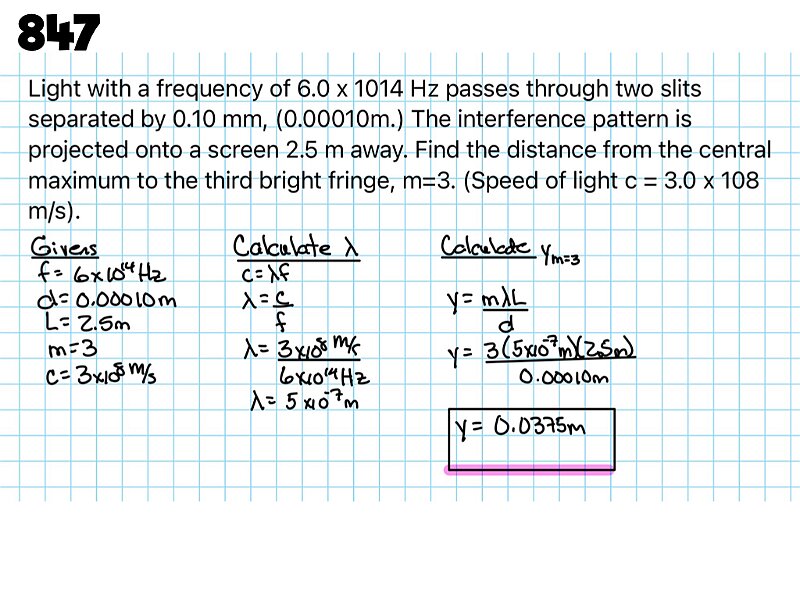 847
Light with a frequency of 6.0 x 1014 Hz passes through two slits
separated by 0.10 mm, (0.00010m.) The interference pattern is
projected onto a screen 2.5 m away. Find the distance from the central
maximum to the third bright fringe, m=3. (Speed of light c = 3.0 x 108
m/s).
Givens
f= 6x10¹⁴ Hz
d= 0.00010m
L= 2.5m
m=3
c= 3x10⁸ m/s
Calculate λ
c=λf
λ= c
f
λ= 3x10⁸ m/s
6x10¹⁴Hz
λ= 5x10⁻⁷m
Calculate yₘ₌₃
y= mλL
d
y= 3(5x10⁻⁷m)(2.5m)
0.00010m
y= 0.0375m